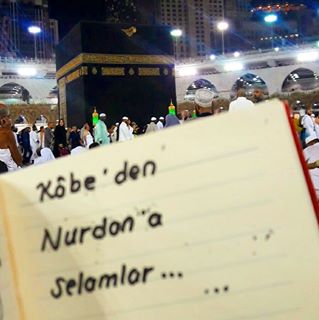 Kâbe'den
Nurdan'a
selamlar...
...